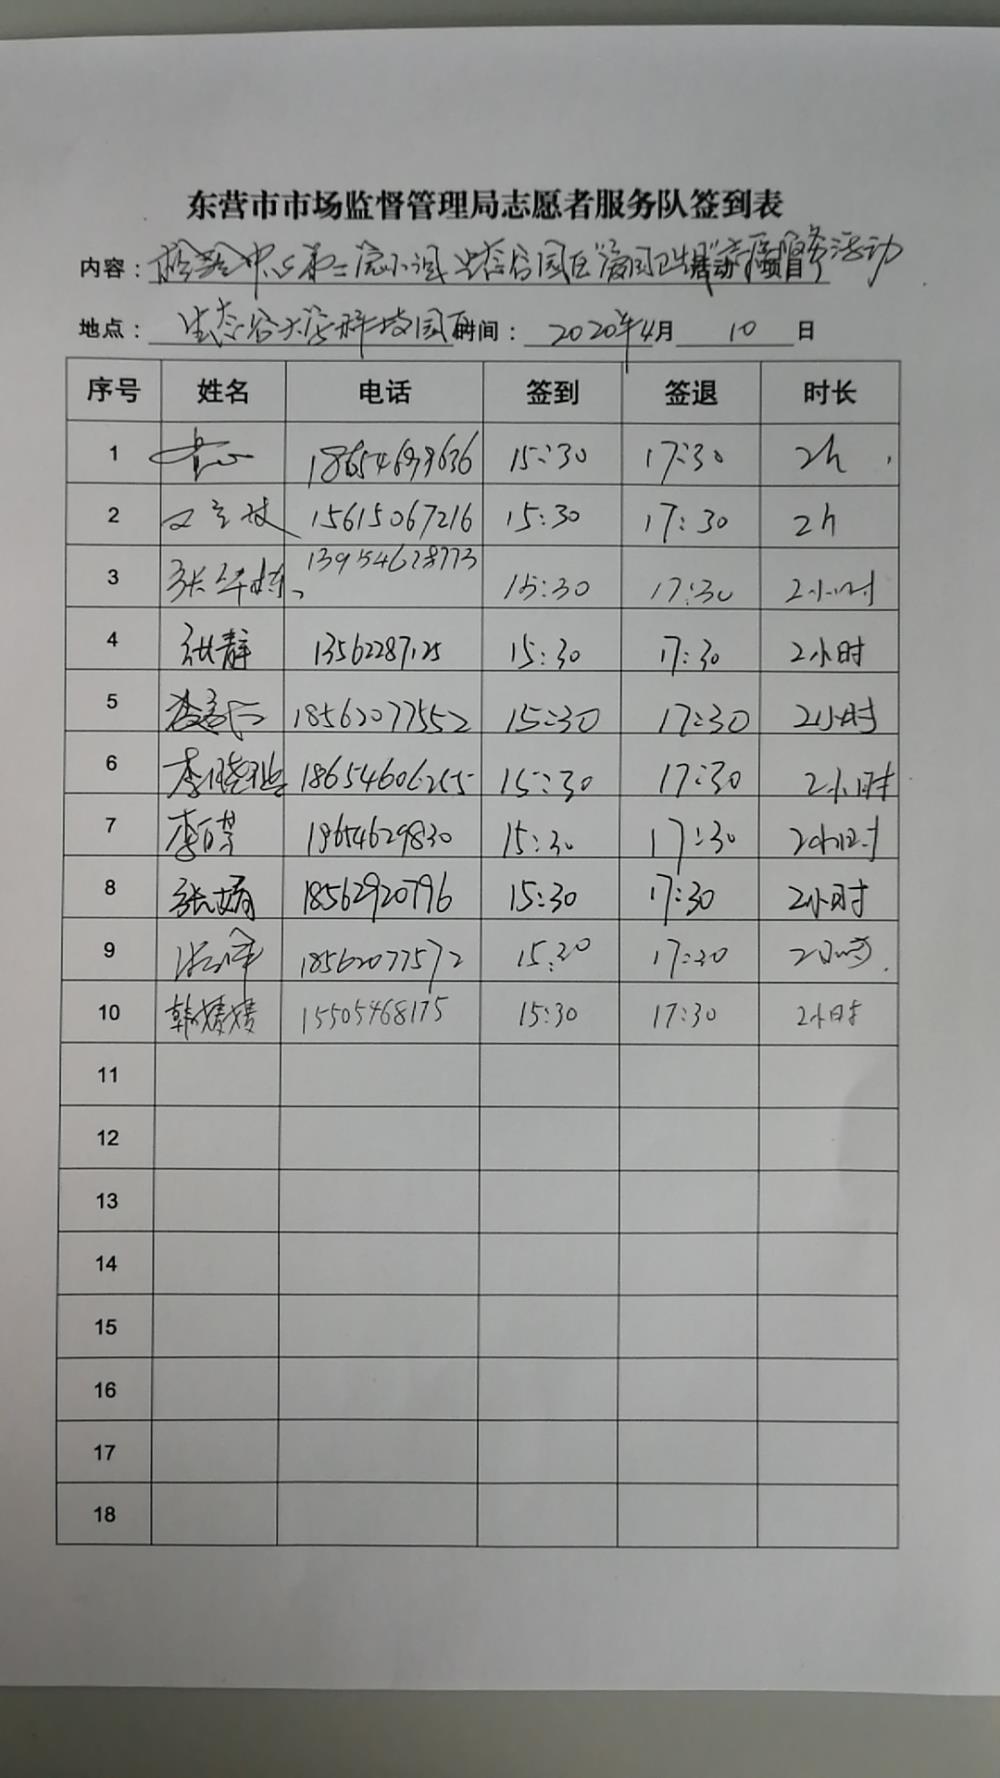 东营市市场监督管理局志愿者服务队签到表
内容：检验中心第二党小组生态谷园区"爱国卫生"志愿服务活动 活动（项目）
地点：生态谷大学科技园 时间：2020年4月10日
序号 姓名 电话 签到 签退 时长
1 15:30 17:30 2h
2 15615067216 15:30 17:30 2h
3 13954628773 15:30 17:30 2小时
4 张静 15:30 17:30 2小时
5 18562077552 15:30 17:30 2小时
6 18654606255 15:30 17:30 2小时
7 18654629830 15:30 17:30 2小时
8 张娟 18562920796 15:30 17:30 2小时
9 18562077572 15:30 17:30 2小时
10 韩媛媛 15505468175 15:30 17:30 2小时
11
12
13
14
15
16
17
18